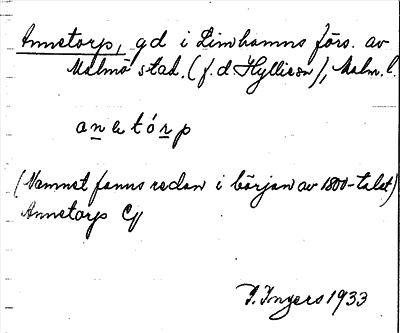 Annetorp, gd i Limhamns förs. av
Malmö stad. (f. d Hyllieon), Malm. l.
a n e t ó r p
(Namnet fanns redan i början av 1800-talet)
Annetorp Cg
I. Ingers 1933